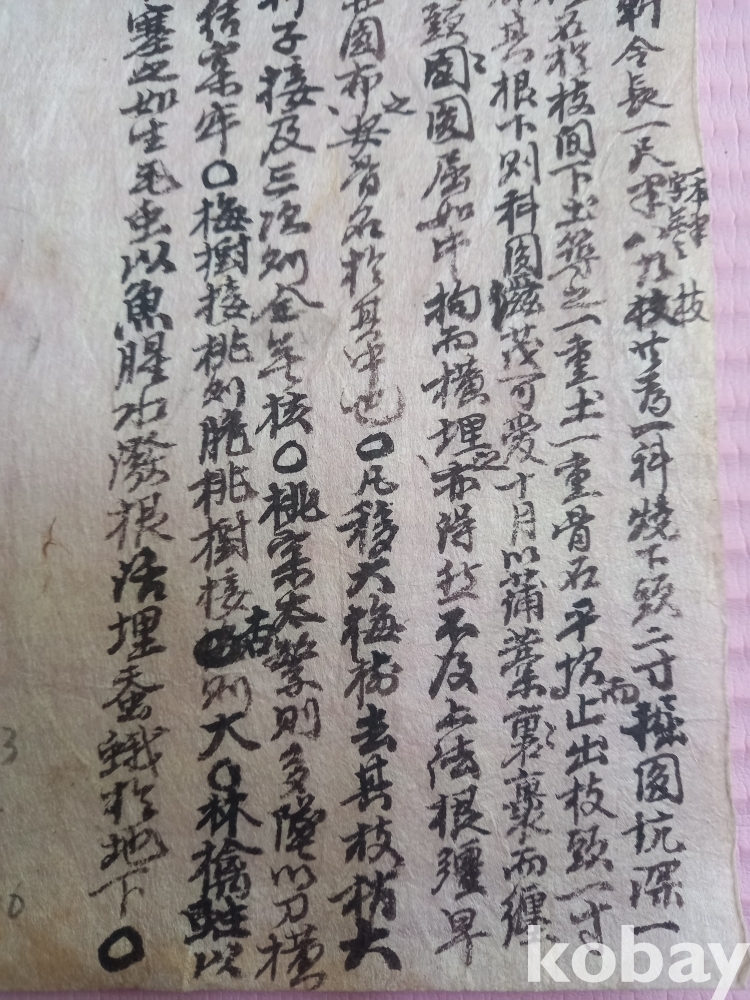 斬令長一尺半八九枝共爲一科燒下頭二寸掘圓坑深一
栽種之枝
石於枝間下土築之一重土一重骨石平坑而止出枝頭一寸
其根下則科圓滋茂可愛十月以蒲藁裹裹而纏
頭圓圓屈如牛拘而橫埋之亦得然不及上法根纏早
圓布之安骨石於其中也〇凡移大梅樹去其枝梢大
子接及三次則全無核〇桃實太繁則多墜以刀橫
結實牢〇梅樹接桃則脆桃樹接杏則大〇林檎蛀以
塞之如生毛虫以魚腥水潑根活埋蚕蛾於地下〇
kobay